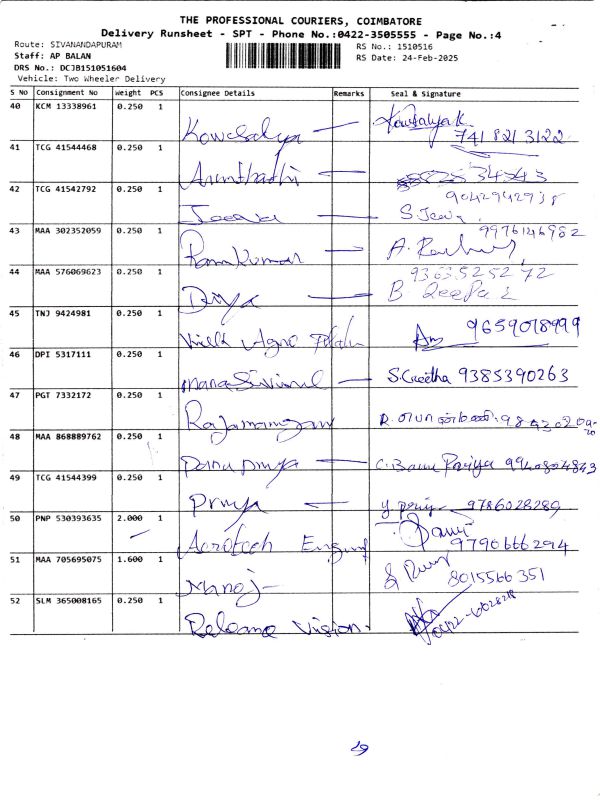 THE PROFESSIONAL COURIERS, COIMBATORE
Delivery Runsheet - SPT - Phone No.:0422-3505555 - Page No.:4
Route: SIVANANDAPURAM
RS No.: 1510516
Staff: AP BALAN
RS Date: 24-Feb-2025
DRS No.: DCJB151051604
Vehicle: Two Wheeler Delivery
S No Consignment No Weight PCS Consignee Details Remarks Seal & Signature
40 KCM 13338961 0.250 1 Kowsalya Kowsalya K
7418213122
41 TCG 41544468 0.250 1 Arunthathi
42 TCG 41542792 0.250 1 9042942938
43 MAA 302352059 0.250 1 Ramkumar 9976146982
44 MAA 576069623 0.250 1 Divya 9363525272
B Deepa
45 TNJ 9424981 0.250 1 Agro 9659018999
46 DPI 5317111 0.250 1 S.Geetha 9385390263
47 PGT 7332172 0.250 1
48 MAA 868889762 0.250 1 Priya
49 TCG 41544399 0.250 1 Priya 9786028289
50 PNP 530393635 2.000 1 Aerotech
9790666294
51 MAA 705695075 1.600 1 Manoj 8015566351
52 SLM 365008165 0.250 1 Vision